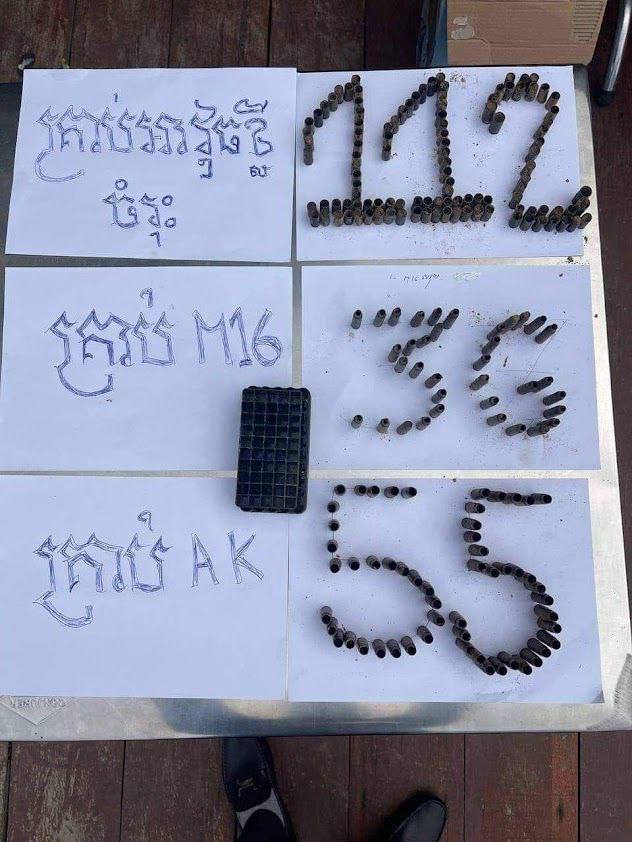 គ្រាប់អាវុធខ្លី
ចំរុះ
112
គ្រាប់ M16
36
គ្រាប់ AK
55